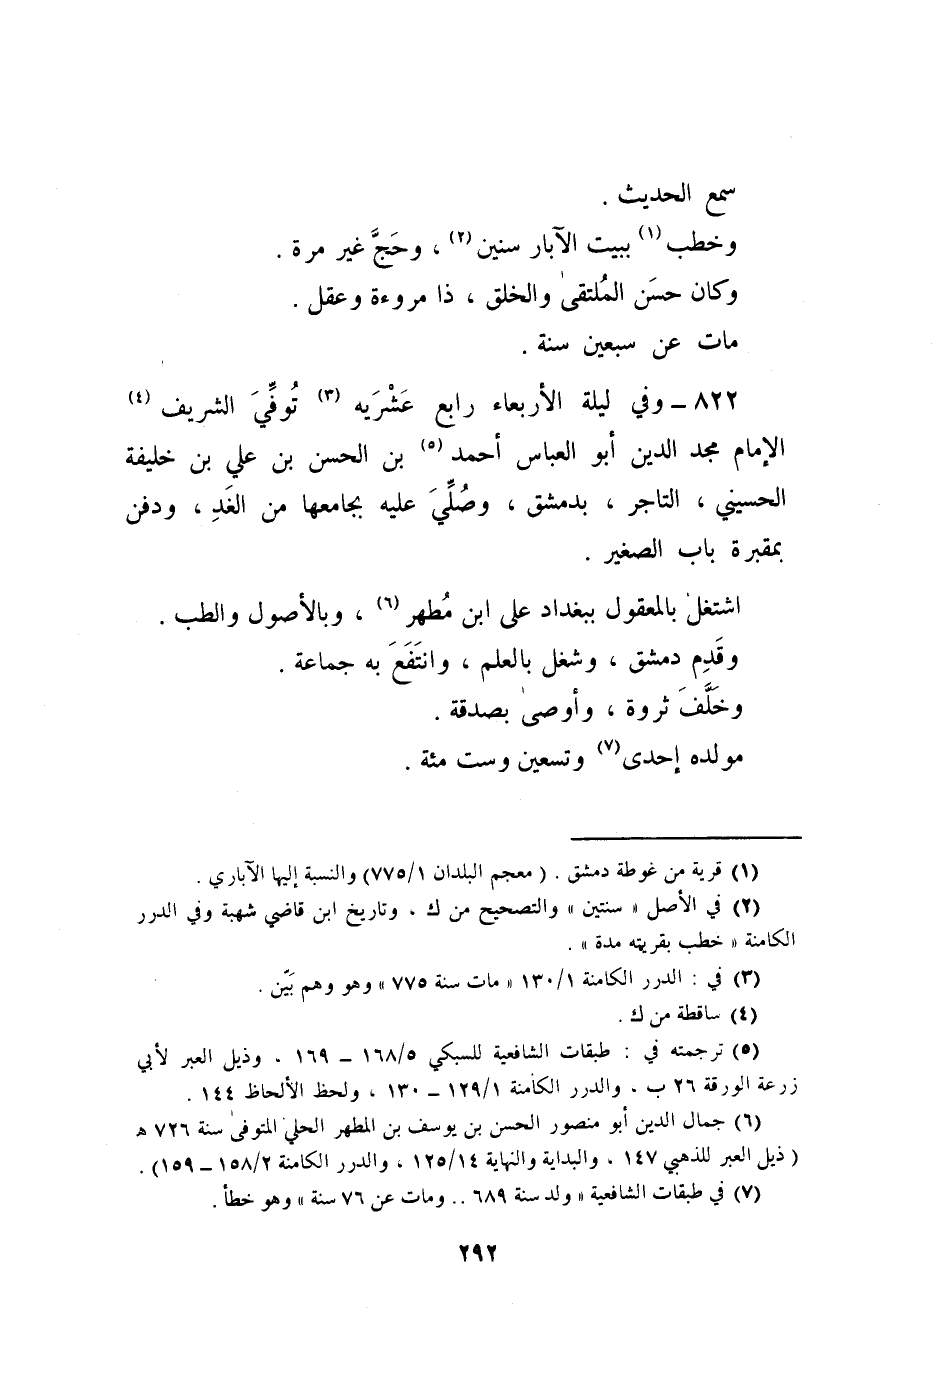 سمع الحديث .
وخطب (١) ببيت الآبار سنين (٢) ، وحَجَّ غير مرة .
وكان حسَن المُلتقىٰ والخلق ، ذا مروءة وعقل .
مات عن سبعين سنة .
٨٢٢ ـ وفي ليلة الأربعاء رابع عَشْرَيه (٣) تُوفِّيَ الشريف (٤)
الإمام مجد الدين أبو العباس أحمد (٥) بن الحسن بن علي بن خليفة
الحسيني ، التاجر ، بدمشق ، وصُلِّيَ عليه بجامعها من الغَدِ ، ودفن
بمقبرة باب الصغير .
اشتغل بالمعقول ببغداد على ابن مُطهر (٦) ، وبالأصول والطب .
وقَدِم دمشق ، وشغل بالعلم ، وانتَفَعَ به جماعة .
وخَلَّفَ ثروة ، وأوصىٰ بصدقة .
مولده إحدى (٧) وتسعين وست مئة .
(١) قرية من غوطة دمشق . ( معجم البلدان ٧٧٥/١) والنسبة إليها الآباري .
(٢) في الأصل « سنتين » والتصحيح من ك . وتاريخ ابن قاضي شهبة وفي الدرر
الكامنة « خطب بقريته مدة » .
(٣) في : الدرر الكامنة ١٣٠/١ « مات سنة ٧٧٥ » وهو وهم بَيّن .
(٤) ساقطة من ك .
(٥) ترجمته في : طبقات الشافعية للسبكي ١٦٨/٥ ـ ١٦٩ . وذيل العبر لأبي
زرعة الورقة ٢٦ ب . والدرر الكامنة ١٢٩/١ ـ ١٣٠ ، ولحظ الألحاظ ١٤٤ .
(٦) جمال الدين أبو منصور الحسن بن يوسف بن المطهر الحلي المتوفىٰ سنة ٧٢٦ هـ
( ذيل العبر للذهبي ١٤٧ . والبداية والنهاية ١٢٥/١٤ ، والدرر الكامنة ١٥٨/٢ ـ ١٥٩) .
(٧) في طبقات الشافعية « ولد سنة ٦٨٩ .. ومات عن ٧٦ سنة » وهو خطأ .
٢٩٢